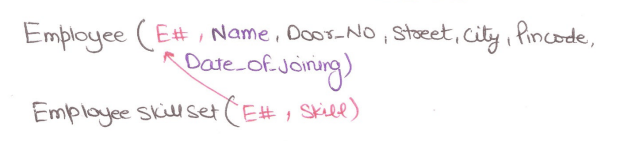 Employee ( E# , Name, Door_No, Street, City, Pincode,
Date_of_Joining)
Employee skillset ( E# , Skill)